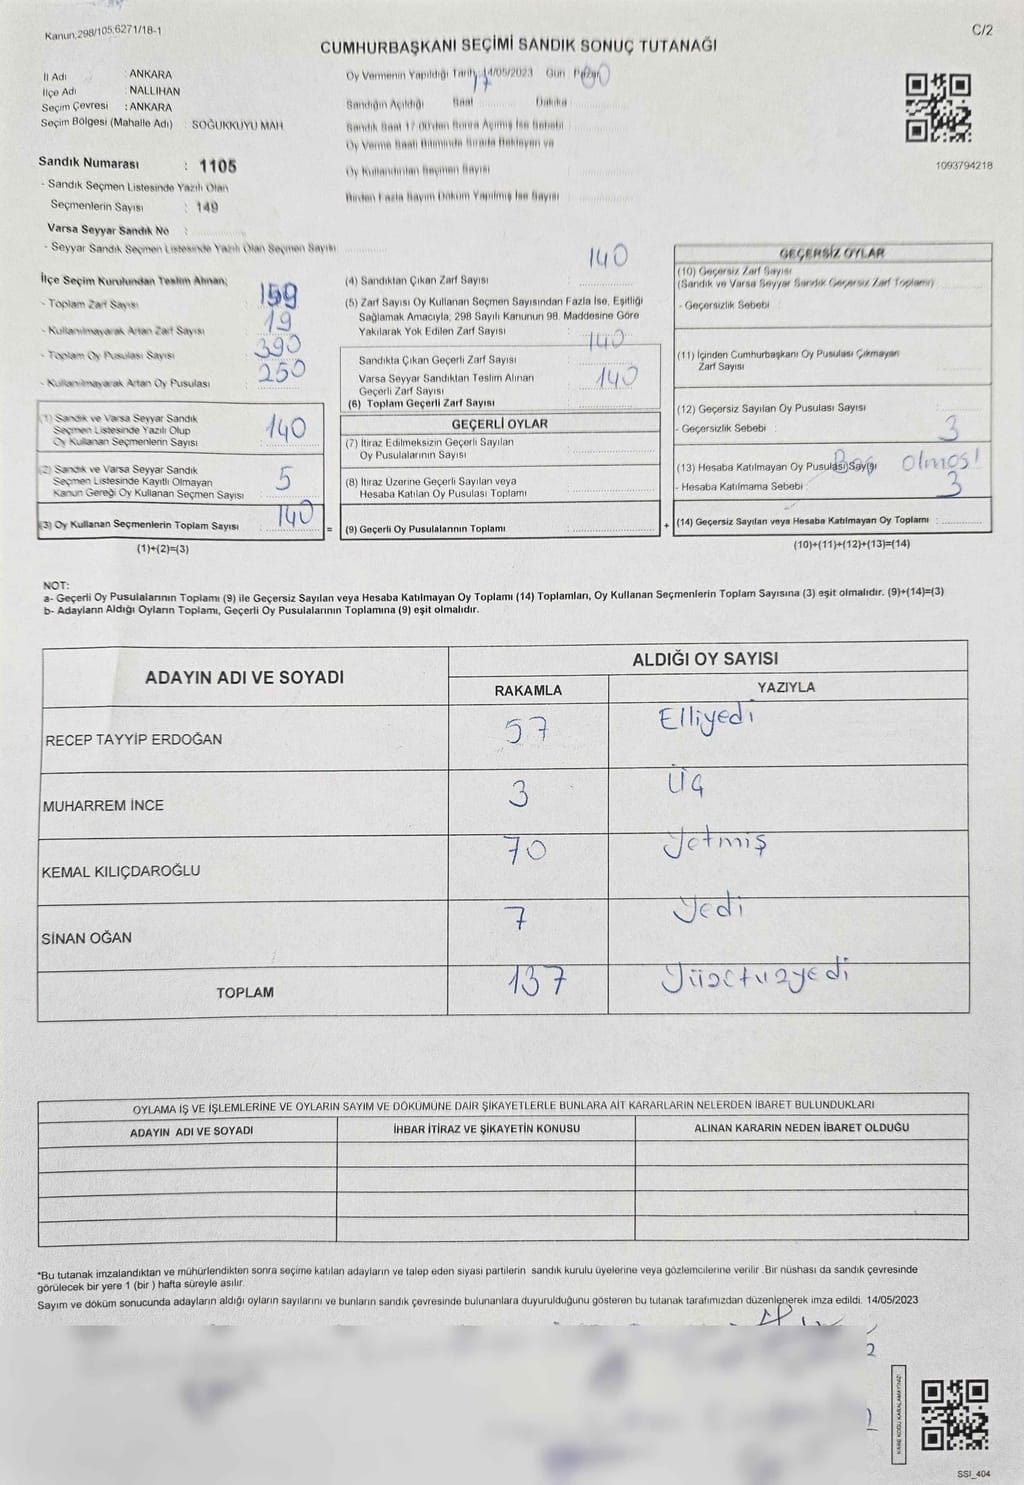 Kanun:298/105,6271/18-1
C/2
CUMHURBAŞKANI SEÇİMİ SANDIK SONUÇ TUTANAĞI
İl Adı : ANKARA
İlçe Adı : NALLIHAN
Seçim Çevresi : ANKARA
Seçim Bölgesi (Mahalle Adı) : SOĞUKKUYU MAH
Oy Vermenin Yapıldığı Tarih: 14/05/2023 Gün : Pazar
Sandığın Açıldığı Saat 17 Dakika 00
Sandık Saat 17:00'den Sonra Açılmış İse Sebebi
Oy Verme Saati Bitiminde Sırada Bekleyen ve
Oy Kullandırılan Seçmen Sayısı
Birden Fazla Sayım Döküm Yapılmış İse Sayısı
1093794218
Sandık Numarası : 1105
- Sandık Seçmen Listesinde Yazılı Olan
Seçmenlerin Sayısı : 149
Varsa Seyyar Sandık No :
- Seyyar Sandık Seçmen Listesinde Yazılı Olan Seçmen Sayısı
İlçe Seçim Kurulundan Teslim Alınan;
- Toplam Zarf Sayısı : 159
- Kullanılmayarak Artan Zarf Sayısı : 19
- Toplam Oy Pusulası Sayısı : 390
- Kullanılmayarak Artan Oy Pusulası : 250
(1) Sandık ve Varsa Seyyar Sandık
Seçmen Listesinde Yazılı Olup
Oy Kullanan Seçmenlerin Sayısı : 140
(2) Sandık ve Varsa Seyyar Sandık
Seçmen Listesinde Kayıtlı Olmayan
Kanun Gereği Oy Kullanan Seçmen Sayısı : 5
(3) Oy Kullanan Seçmenlerin Toplam Sayısı : 140
(1)+(2)=(3)
(4) Sandıktan Çıkan Zarf Sayısı : 140
(5) Zarf Sayısı Oy Kullanan Seçmen Sayısından Fazla İse, Eşitliği
Sağlamak Amacıyla; 298 Sayılı Kanunun 98. Maddesine Göre
Yakılarak Yok Edilen Zarf Sayısı :
Sandıkta Çıkan Geçerli Zarf Sayısı : 140
Varsa Seyyar Sandıktan Teslim Alınan
Geçerli Zarf Sayısı
(6) Toplam Geçerli Zarf Sayısı : 140
GEÇERLİ OYLAR
(7) İtiraz Edilmeksizin Geçerli Sayılan
Oy Pusulalarının Sayısı :
(8) İtiraz Üzerine Geçerli Sayılan veya
Hesaba Katılan Oy Pusulası Toplamı :
= (9) Geçerli Oy Pusulalarının Toplamı :
GEÇERSİZ OYLAR
(10) Geçersiz Zarf Sayısı
(Sandık ve Varsa Seyyar Sandık Geçersiz Zarf Toplamı)
- Geçersizlik Sebebi :
(11) İçinden Cumhurbaşkanı Oy Pusulası Çıkmayan
Zarf Sayısı :
(12) Geçersiz Sayılan Oy Pusulası Sayısı
- Geçersizlik Sebebi : 3
(13) Hesaba Katılmayan Oy Pusulası Sayısı
- Hesaba Katılmama Sebebi : 3
+ (14) Geçersiz Sayılan veya Hesaba Katılmayan Oy Toplamı :
(10)+(11)+(12)+(13)=(14)
NOT:
a- Geçerli Oy Pusulalarının Toplamı (9) ile Geçersiz Sayılan veya Hesaba Katılmayan Oy Toplamı (14) Toplamları, Oy Kullanan Seçmenlerin Toplam Sayısına (3) eşit olmalıdır. (9)+(14)=(3)
b- Adayların Aldığı Oyların Toplamı, Geçerli Oy Pusulalarının Toplamına (9) eşit olmalıdır.
ADAYIN ADI VE SOYADI
ALDIĞI OY SAYISI
RAKAMLA YAZIYLA
RECEP TAYYİP ERDOĞAN 57 Elliyedi
MUHARREM İNCE 3 Üç
KEMAL KILIÇDAROĞLU 70 Yetmiş
SİNAN OĞAN 7 Yedi
TOPLAM 137
OYLAMA İŞ VE İŞLEMLERİNE VE OYLARIN SAYIM VE DÖKÜMÜNE DAİR ŞİKAYETLERLE BUNLARA AİT KARARLARIN NELERDEN İBARET BULUNDUKLARI
ADAYIN ADI VE SOYADI İHBAR İTİRAZ VE ŞİKAYETİN KONUSU ALINAN KARARIN NEDEN İBARET OLDUĞU
*Bu tutanak imzalandıktan ve mühürlendikten sonra seçime katılan adayların ve talep eden siyasi partilerin sandık kurulu üyelerine veya gözlemcilerine verilir .Bir nüshası da sandık çevresinde
görülecek bir yere 1 (bir ) hafta süreyle asılır.
Sayım ve döküm sonucunda adayların aldığı oyların sayılarını ve bunların sandık çevresinde bulunanlara duyurulduğunu gösteren bu tutanak tarafımızdan düzenlenerek imza edildi. 14/05/2023
KARE KODU KARALAMAYINIZ!
SSI_404